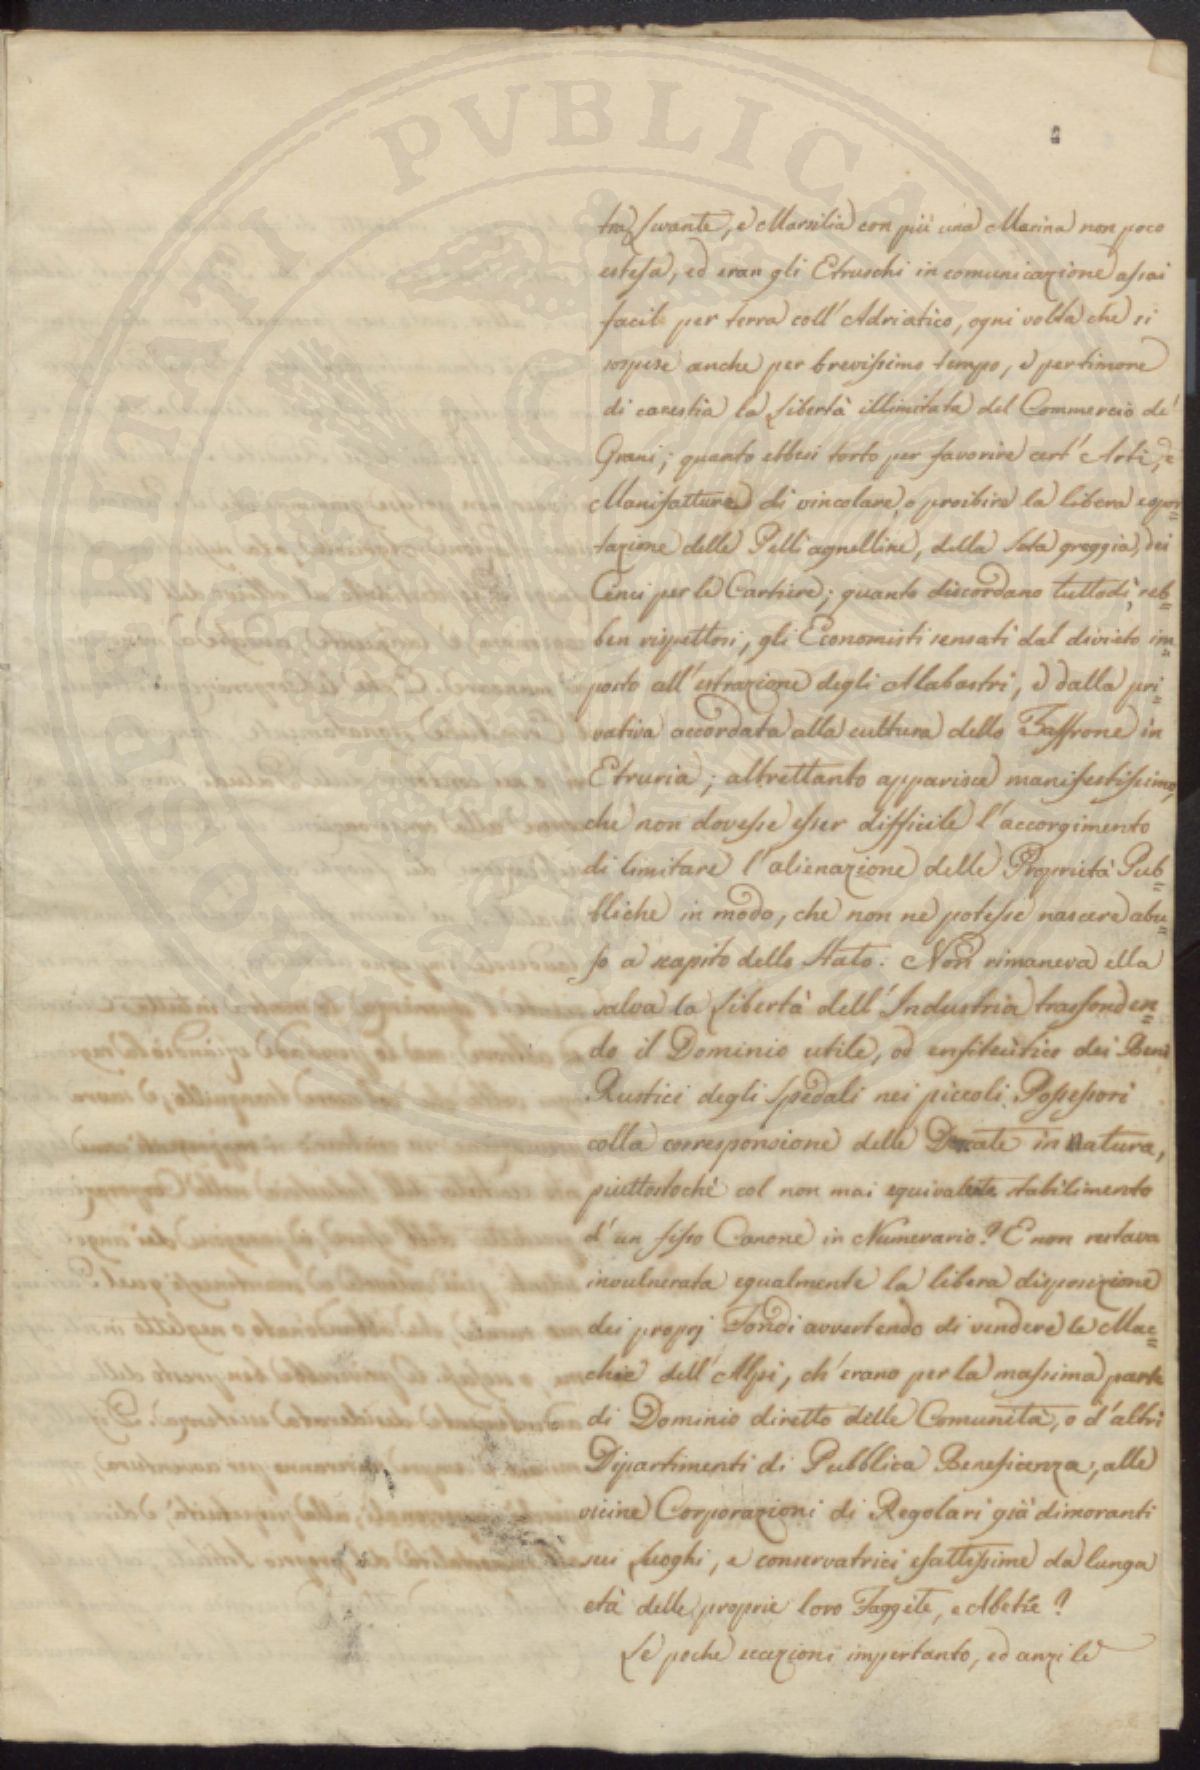 tra Levante, e Marsilia con più una Marina non poco
estesa, ed eran gli Etruschi in comunicazione assai
facile per terra coll'Adriatico, ogni volta che si
sospese anche per brevissimo tempo, e per timore
di carestia la Libertà illimitata del Commercio de'
Grani; quanto ebbesi torto per favorire cert'Arti, e
Manifatture di vincolare, o proibire la libera espor=
tazione delle Pelli agnelline, della Seta greggia, dei
Cenci per le Cartiere; quanto discordano tuttodì, seb=
ben rispettosi, gli Economisti sensati dal divieto im=
posto all'estrazione degli Alabastri, e dalla pri=
vativa accordata alla cultura dello Zaffrone in
Etruria; altrettanto apparisce manifestissimo,
che non dovesse esser difficile l'accorgimento
di limitare l'alienazione delle Proprietà Pub=
bliche in modo, che non ne potesse nascere abu=
so a scapito dello Stato. Non rimaneva ella
salva la Libertà dell'Industria trasfonden=
do il Dominio utile, od enfiteutico dei Beni
Rustici degli Spedali nei piccoli Possessori
colla corresponsione delle Derrate in Natura,
piuttostochè col non mai equivalente stabilimento
d'un fisso Canone in Numerario? E non restava
invulnerata egualmente la libera disposizione
dei proprj Fondi avvertendo di vendere le Mac=
chie dell'Alpi, ch'erano per la massima parte
di Dominio diretto delle Comunità, o d'altri
Dipartimenti di Pubblica Beneficenza, alle
vicine Corporazioni di Regolari già dimoranti
sui Luoghi, e conservatrici esattissime da lunga
età delle proprie loro Faggete, e Abetie?
Le poche eccezioni impertanto, ed anzi le
PROSPERITATI PVBLICAE